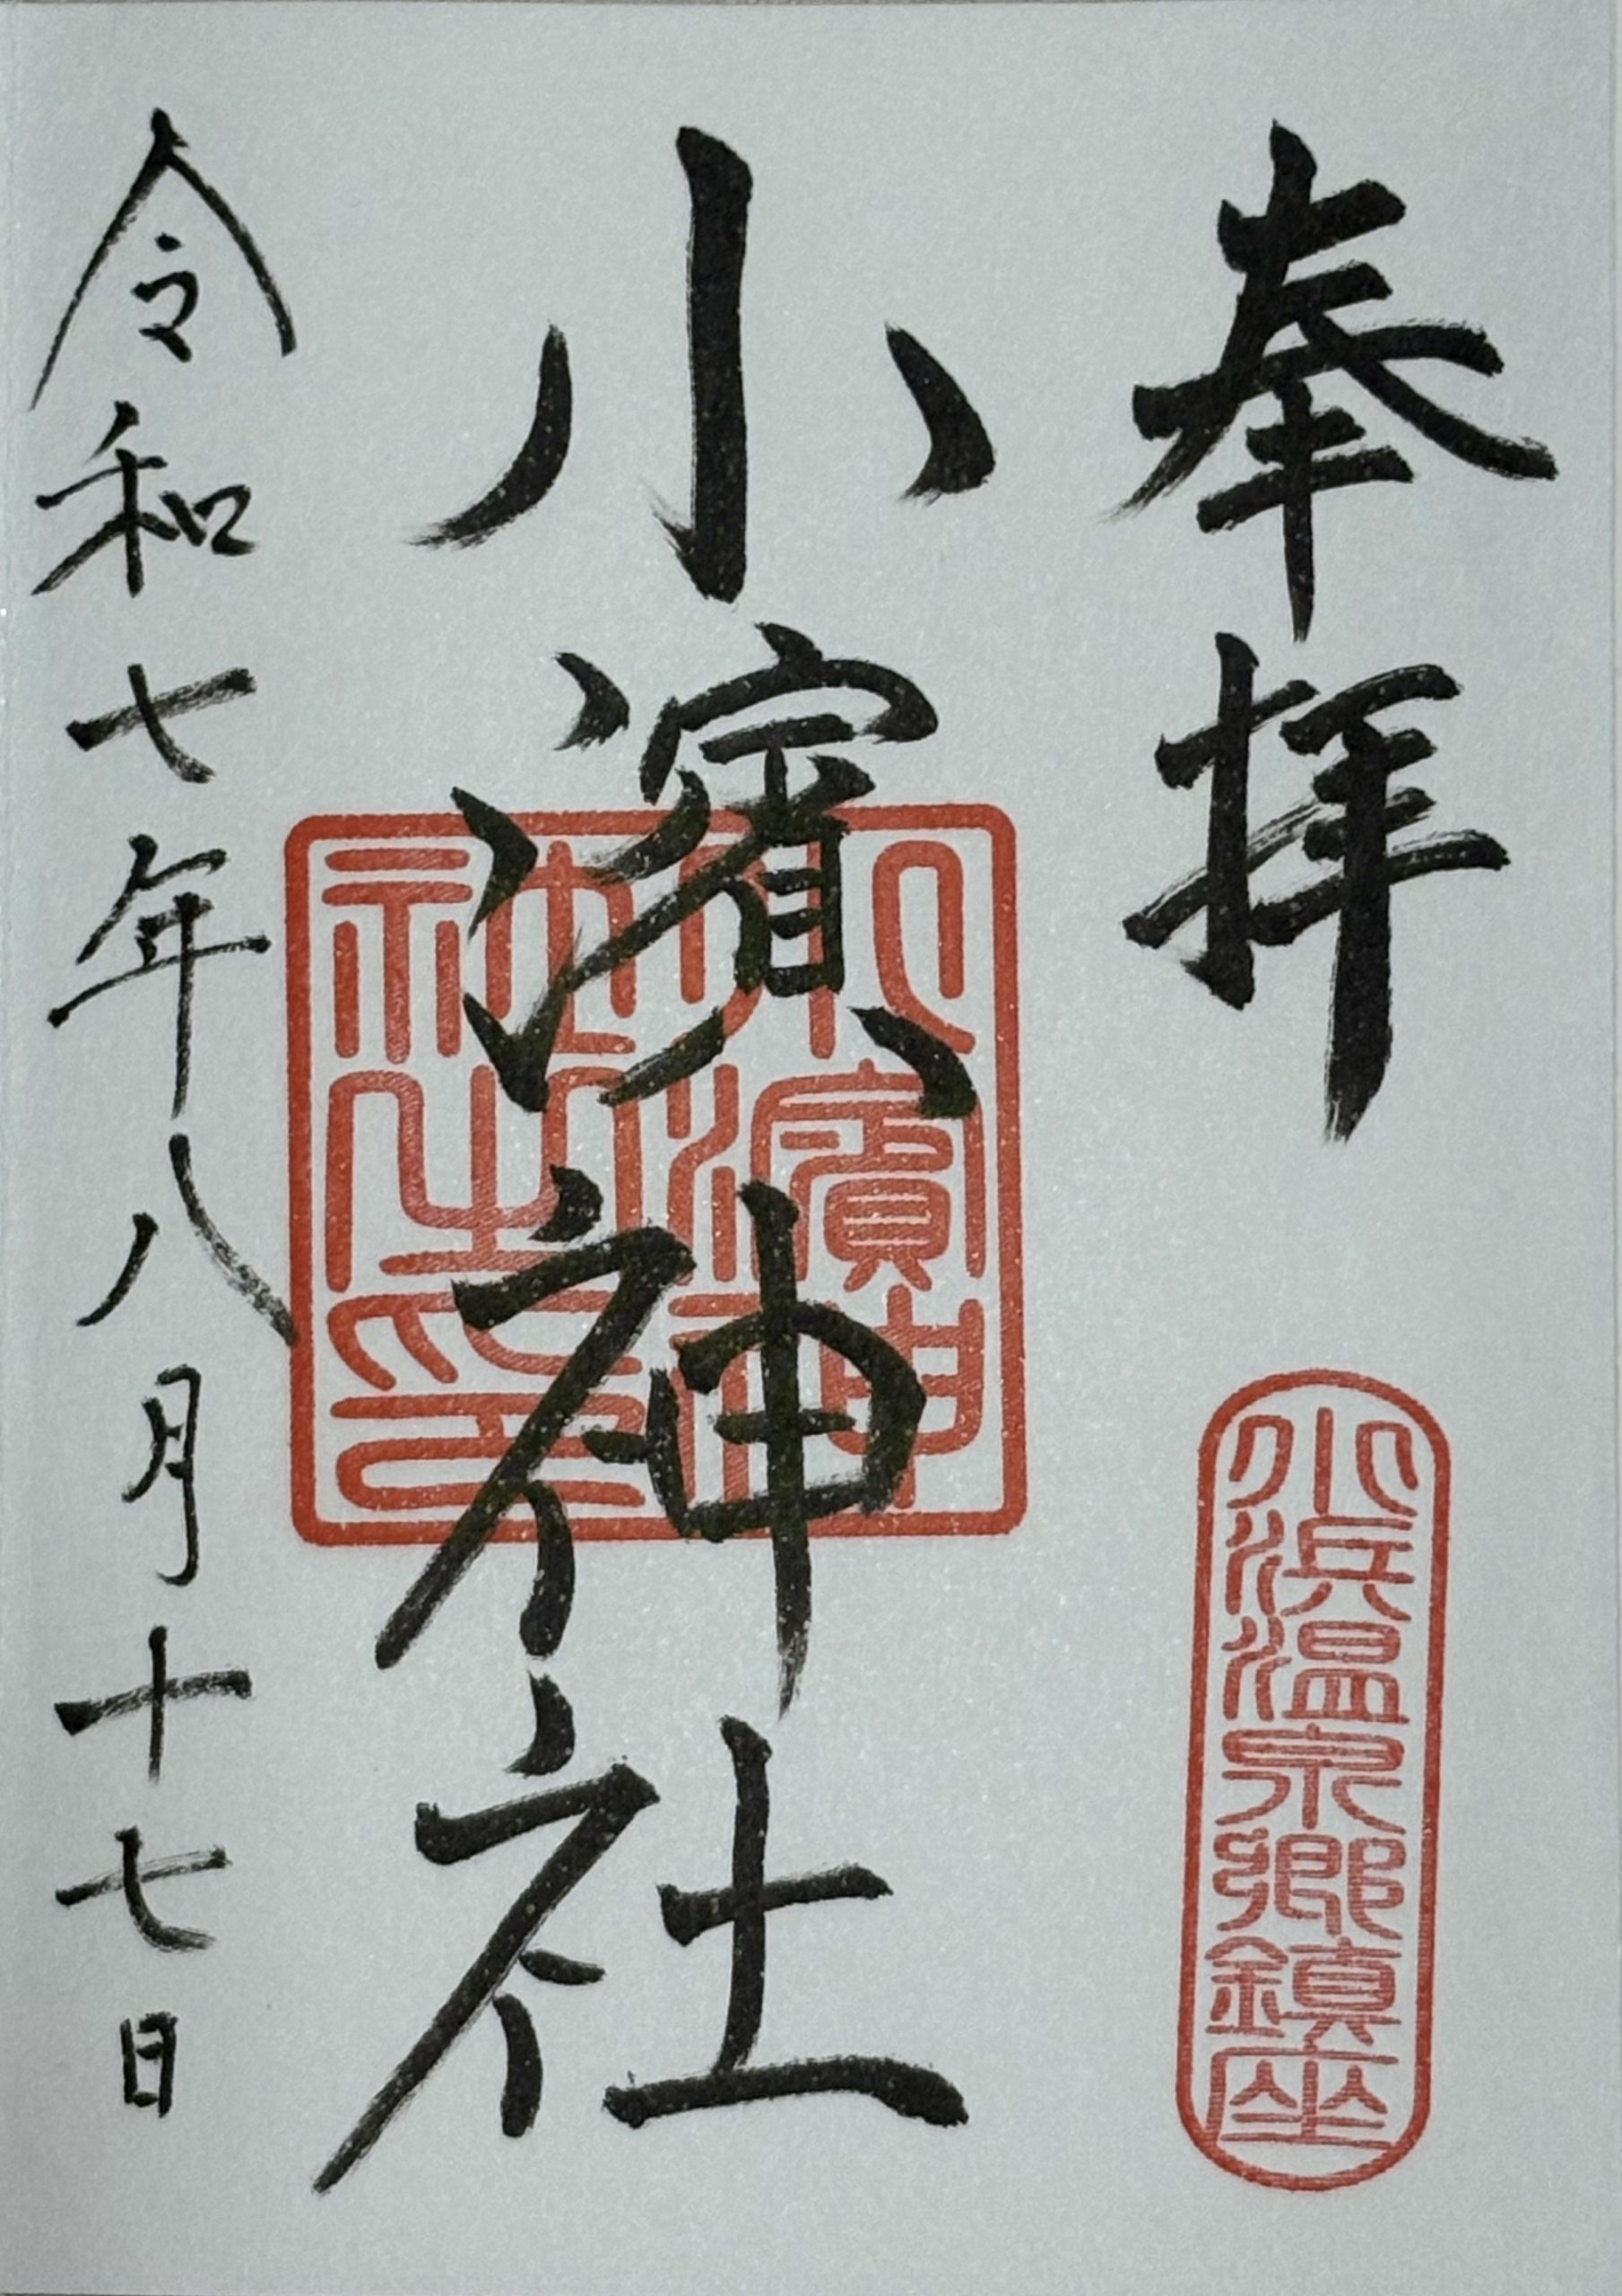 奉拝
小浜温泉郷鎮座
小濱神社
小濱神社之印
令和七年八月十七日